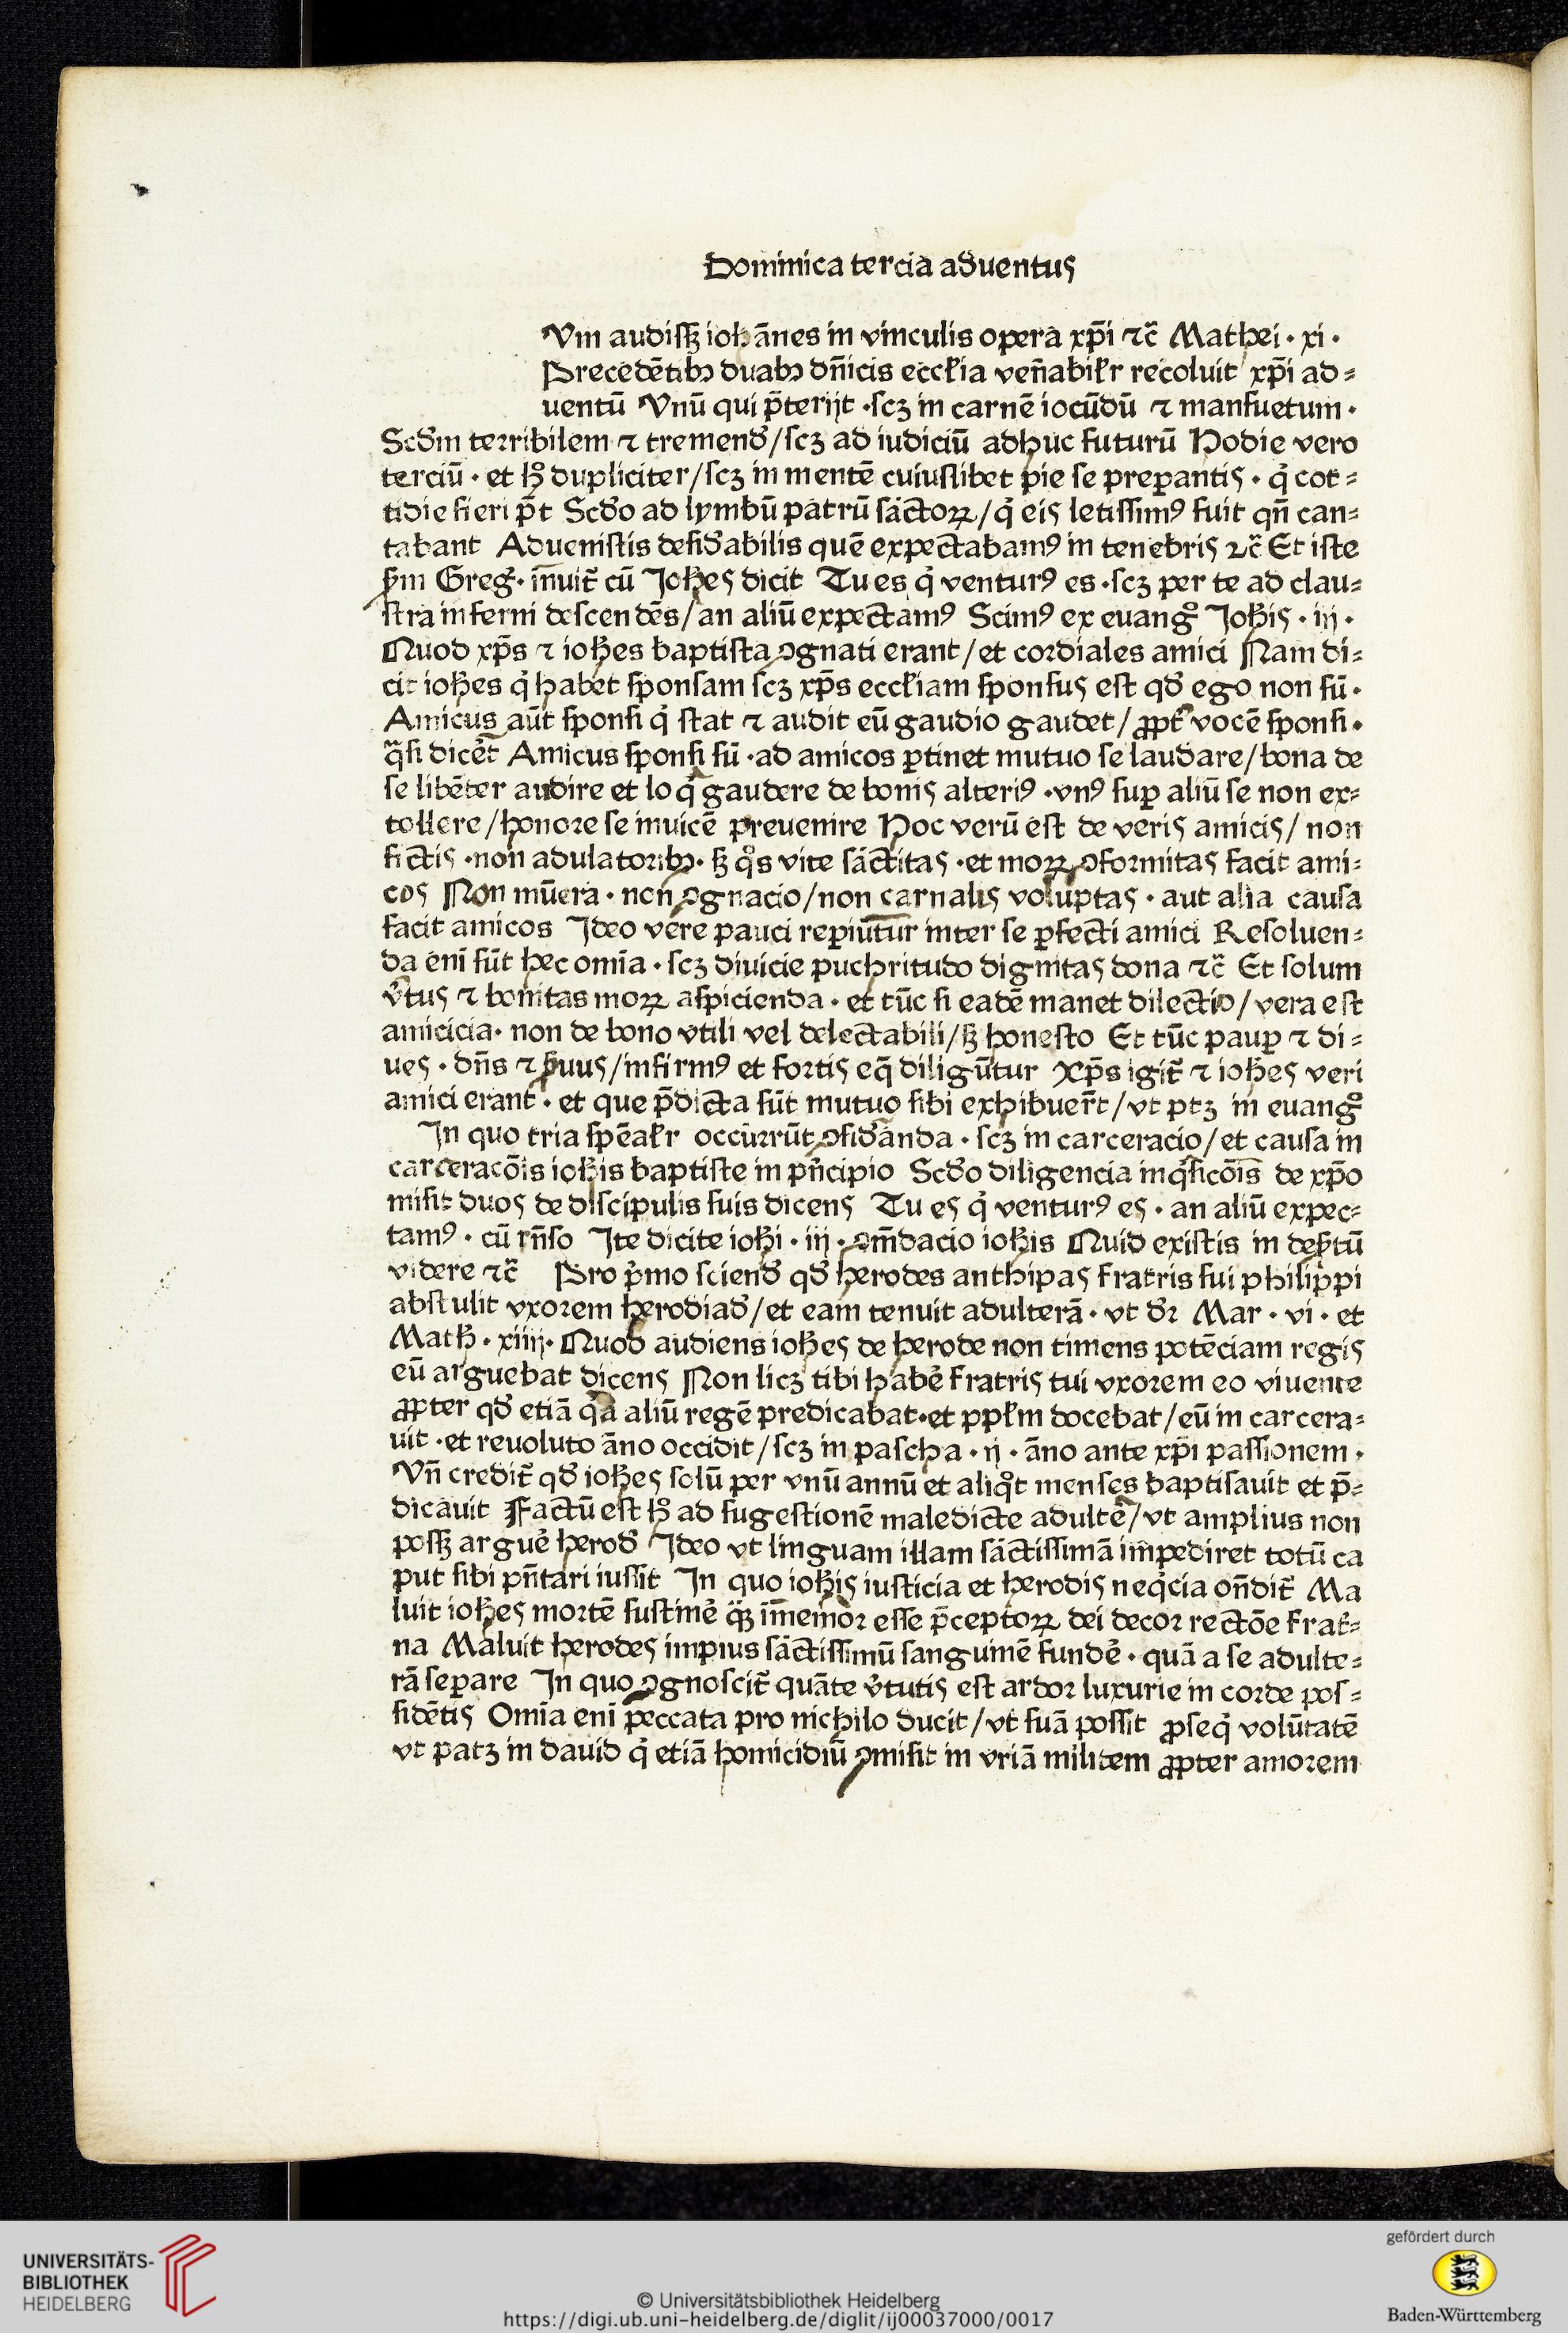 Dominica tercia aduentus
Vm audiſſꝫ iohānes in vinculis opera xp̄i ⁊c̄ Mathei · xi ·
Precedētibꝰ duabꝰ dn̄icis eccl̄ia ven̄abil̄r recoluit xp̄i ad⸗
uentū Vnū qui p̄terijt ·ſcꝫ in carnē iocūdū ⁊ manſuetum ·
Scd̓m terribilem ⁊ tremend̓/ſcꝫ ad iudiciū adhuc futurū Hodie vero
terciū · et hͦ dupliciter/ſcꝫ in mentē cuiuſlibet pie ſe preꝑantis · qͥ cot⸗
tidie fieri p̄t Scd̓o ad lymbū patrū ſāctoꝝ/qͥ eis letiſſimꝰ fuit qn̄ can⸗
tabant Aduenistis deſid̓abilis quē expectabamꝰ in tenebris ⁊c̄ Et iſte
ẜm Greg̓· in̄uit̄ cū Joh̄es dicit Tu es qͥ venturꝰ es ·ſcꝫ per te ad clau⸗
ſtra inferni deſcendēs/an aliū expectamꝰ Scimꝰ ex euangͦ Joh̄is · iij ·
Quod xp̄s ⁊ ioh̄es baptiſta ꝯgnati erant/et cordiales amici Nam di⸗
cit ioh̄es qͥ habet ſponſam ſcꝫ xp̄s eccl̄iam ſponſus eſt qd̓ ego non ſū·
Amicus aūt ſponſi qͥ ſtat ⁊ audit eū gaudio gaudet/ꝓpt̓ vocē ſponſi·
qͣſi dicēt Amicus ſponſi ſū ·ad amicos ꝑtinet mutuo ſe laudare/bona de
ſe libēter audire et loqͥ gaudere de bonis alteriꝰ ·vnꝰ ſuꝑ aliū ſe non ex⸗
tollere/honore ſe inuicē preuenire Hoc verū eſt de veris amicis/non
fictis ·non adulatoribꝰ· ſꝫ qͦs vite ſāctitas ·et moꝝ ꝯformitas facit ami⸗
cos Non mūera · non ꝯgnacio/non carnalis voluptas · aut alia cauſa
facit amicos Ideo vere pauci reꝑiūtur inter ſe ꝑfecti amici Reſoluen⸗
da eni ſūt hec om̄ia · ſcꝫ diuicie puchritudo dignitas dona ⁊c̄ Et ſolum
v̓tus ⁊ bonitas moꝝ aſpicienda · et tūc ſi eadē manet dilectio/vera eſt
amicicia· non de bono vtili vel delectabili/ſꝫ honeſto Et tūc pauꝑ ⁊ di⸗
ues · dn̄s ⁊ ẜuus/infirmꝰ et fortis eq̄ diligūtur Xp̄s igit̄ ⁊ ioh̄es veri
amici erant · et que p̄dicta ſūt mutuo ſibi exhibuer̄t/vt ptꝫ in euangͦ
In quo tria ſpēal̄r occurrūt ꝯſid̓anda · ſcꝫ in carceracio/et cauſa in
carceracōis ioh̄is baptiſte in pn̄cipio Scd̓o diligencia inqͥſicōis de xp̄o
miſit duos de diſcipulis ſuis dicens Tu es qͥ venturꝰ es · an aliū expec⸗
tamꝰ · cū rn̄ſo Ite dicite ioh̄i · iij · ꝯm̄dacio ioh̄is Quid existis in deẜtū
videre ⁊c̄ Pro pͥmo ſciend̓ qd̓ herodes anthipas fratris ſui philippi
abſtulit vxorem herodiad̓/et eam tenuit adulterā · vt dr̄ Mar · vi · et
Math̄ · xiiij· Quod audiens ioh̄es de herode non timens potēciam regis
eū arguebat dicens Non licꝫ tibi habē fratris tui vxorem eo viuente
ꝓpter qd̓ etiā qͥa aliū regē predicabat·et ppl̄m docebat/eū in carcera⸗
uit ·et reuoluto āno occidit/ſcꝫ in paſcha · ij · āno ante xp̄i paſſionem ·
Vn̄ credit̄ qd̓ ioh̄es ſolū per vnū annū et aliqͦt menſes baptiſauit et p̄⸗
dicauit Factū eſt hͦ ad ſugeſtionē maledicte adultē/vt amplius non
poſſꝫ arguē herod̓ Ideo vt linguam illam ſāctiſſimā impediret totū ca
put ſibi pn̄tari iuſſit In quo ioh̄is iuſticia et herodis neqͥcia on̄dit̄ Ma
luit ioh̄es mortē ſuſtinē qͣꝫ im̄emor eſſe p̄ceptoꝝ dei decor rectōe frat̓⸗
na Maluit herodes impius ſāctiſſimū ſanguinē fundē · quā a ſe adulte⸗
rā ſeꝑare In quo ꝯgnoſcit̄ quāte v̓tutis eſt ardor luxurie in corde poſ⸗
ſidētis Omīa eni peccata pro nichilo ducit/vt ſuā poſſit ꝓſeqͥ volūtatē
vt patꝫ in dauid qͥ etiā homicidiū ꝯmiſit in vriā militem ꝓpter amorem
UNIVERSITÄTS-
BIBLIOTHEK
HEIDELBERG
© Universitätsbibliothek Heidelberg
https://digi.ub.uni-heidelberg.de/diglit/ij00037000/0017
gefördert durch
Baden-Württemberg